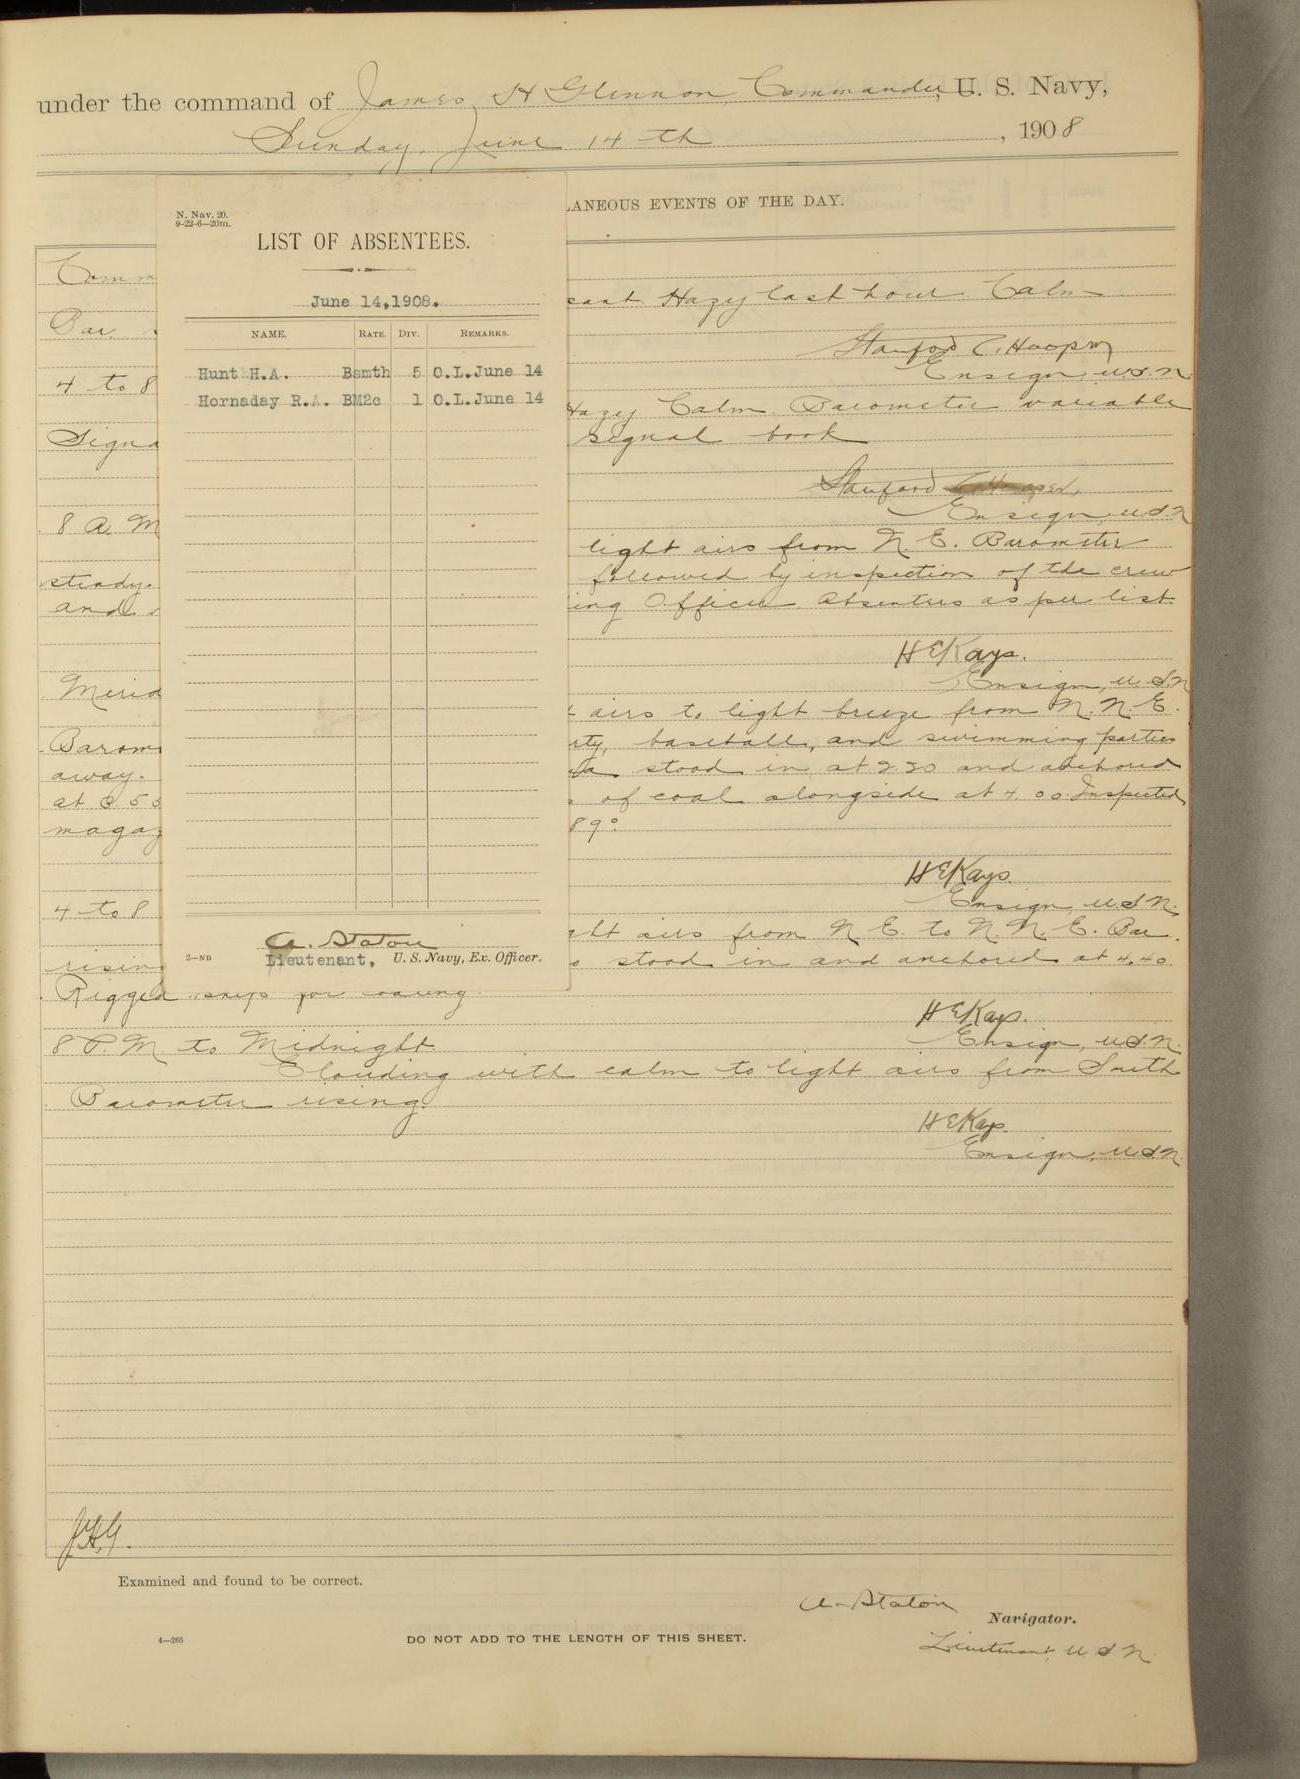 under the command of James H Glennon, Commander, U. S. Navy,
Sunday, June 14th, 1908
LANEOUS EVENTS OF THE DAY.
N. Nav. 20.
9-22-6—20m.
LIST OF ABSENTEES.
June 14,1908.
NAME. RATE. DIV. REMARKS.
Hunt H.A. Bsmth 5 O.L.June 14
Hornaday R.A. BM2c 1 O.L.June 14
A. Staton
2—NB Lieutenant, U. S. Navy, Ex. Officer.
Comm
Bar. cast Hazy last hour. Calm
Stanford C. Hooper
Ensign, U.S.N.
4 to 8
Hazy Calm. Barometer variable
Signa signal book
Stanford C. Hooper,
Ensign, U.S.N.
8 A. M
light airs from N. E. Barometer
steady. followed by inspection of the crew
and ing Officer. Absentees as per list
H E Kays.
Ensign, U.S.N.
Merid
airs to light breeze from N. N. E.
Barom rty, baseball, and swimming parties
away. stood in at 2.20 and anchored
at of coal alongside at 4.00. Inspected
magaz 89°
H E Kays.
Ensign, U.S.N.
4 to 8
ght airs from N. E. to N. N. E. Bar.
rising stood in and anchored at 4.40
Rigged ship for coaling
H E Kays.
Ensign, U.S.N.
8 P. M. to Midnight
Clouding with calm to light airs from South
Barometer rising.
H E Kays
Ensign, U.S.N.
J.H.G.
Examined and found to be correct.
A. Staton
Navigator.
Lieutenant, U S N.
4—265
DO NOT ADD TO THE LENGTH OF THIS SHEET.